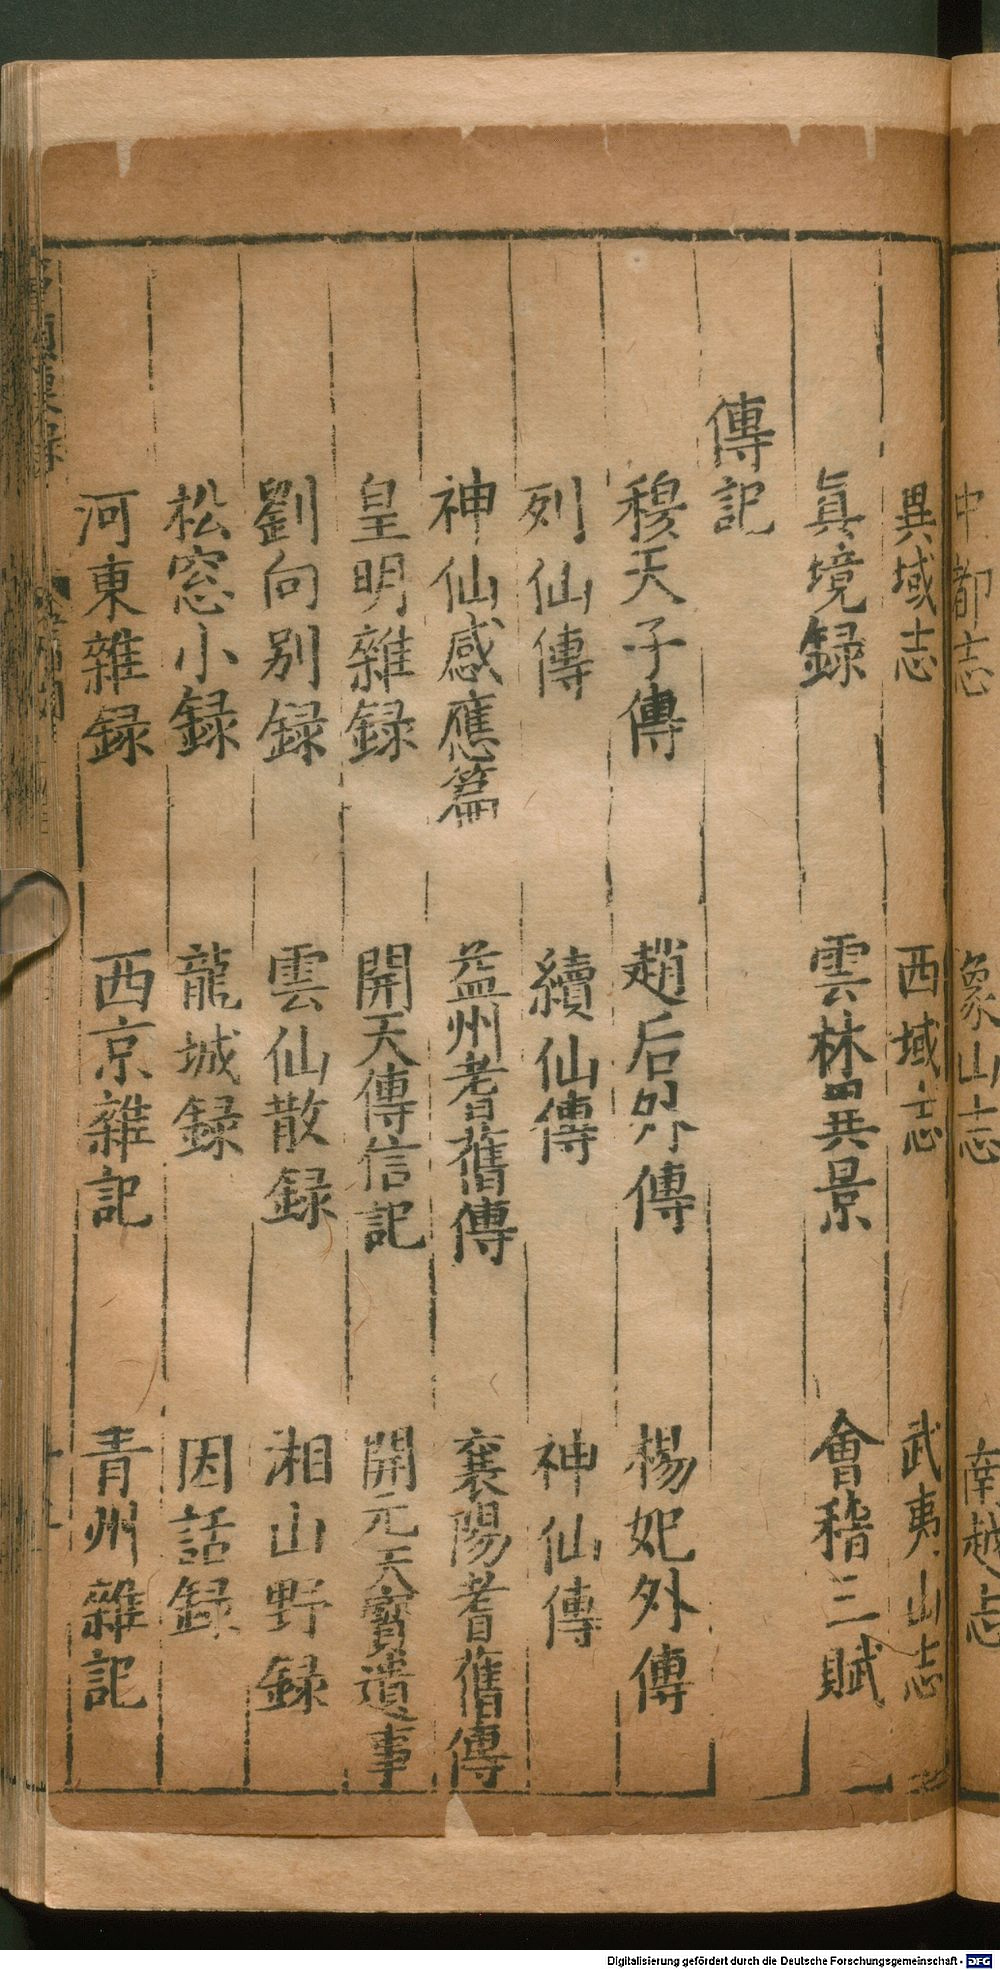 中都志　象山志　南越志
異域志　西域志　武夷山志
眞境録　雲林異景　會稽三賦
傳記
穆天子傳　趙后外傳　楊妃外傳
列仙傳　續仙傳　神仙傳
神仙感應篇　益州耆舊傳　襄陽耆舊傳
皇明雜録　開天傳信記　開元天寶遺事
劉向別録　雲仙散録　湘山野録
松窓小録　龍城録　因話録
河東雜録　西京雜記　青州雜記
Digitalisierung gefördert durch die Deutsche Forschungsgemeinschaft - DFG